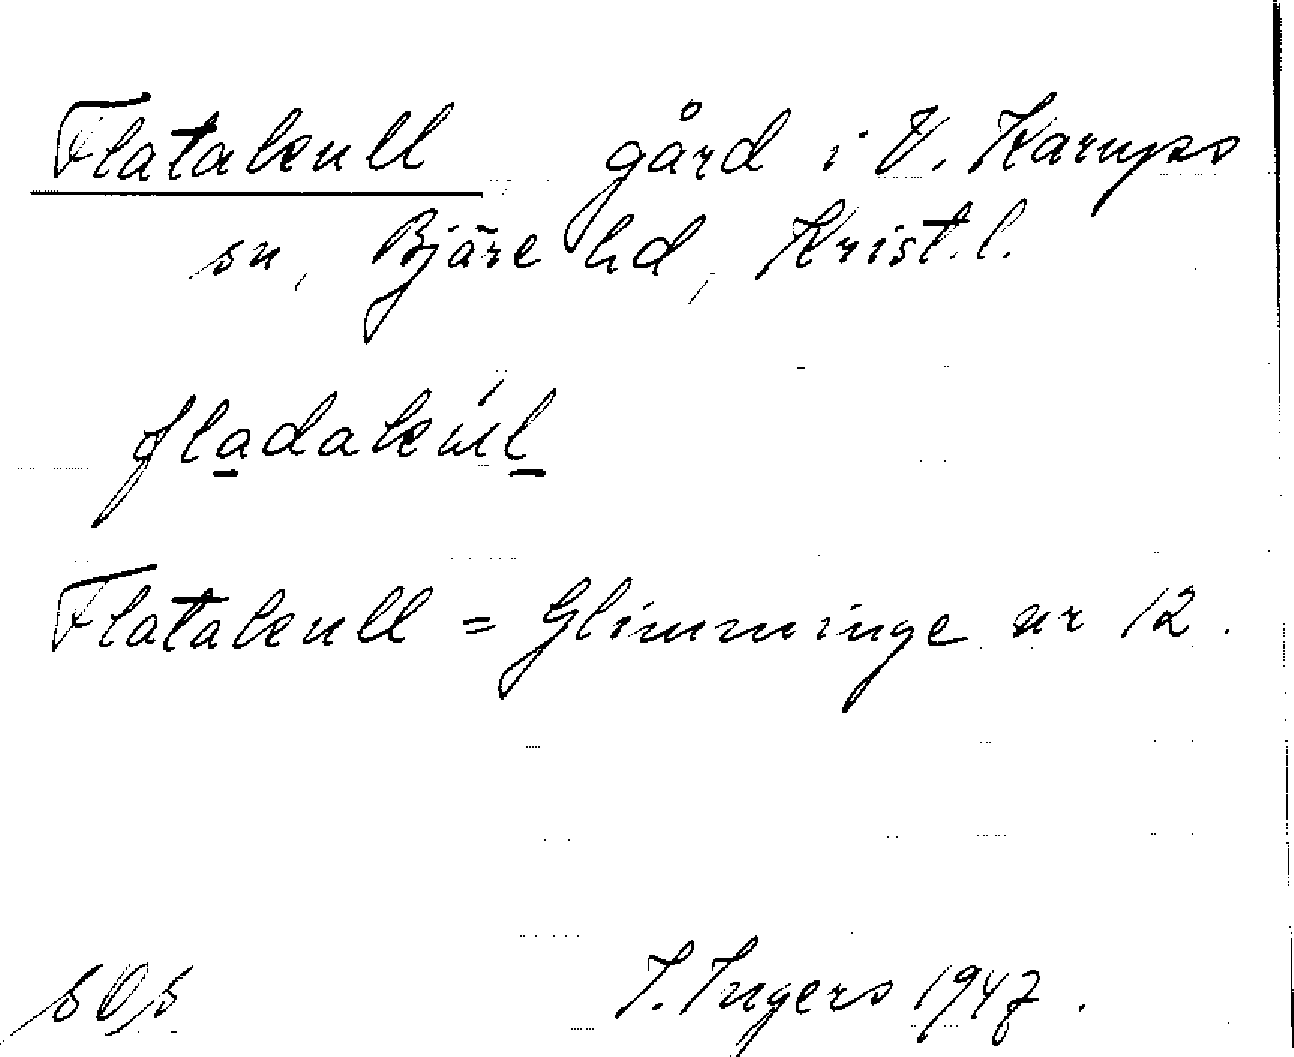 Flatakull gård i V. Karups
sn, Bjäre hd, Krist.l.
fladakúl
Flatakull = Glimminge nr 12.
I. Ingers 1947.